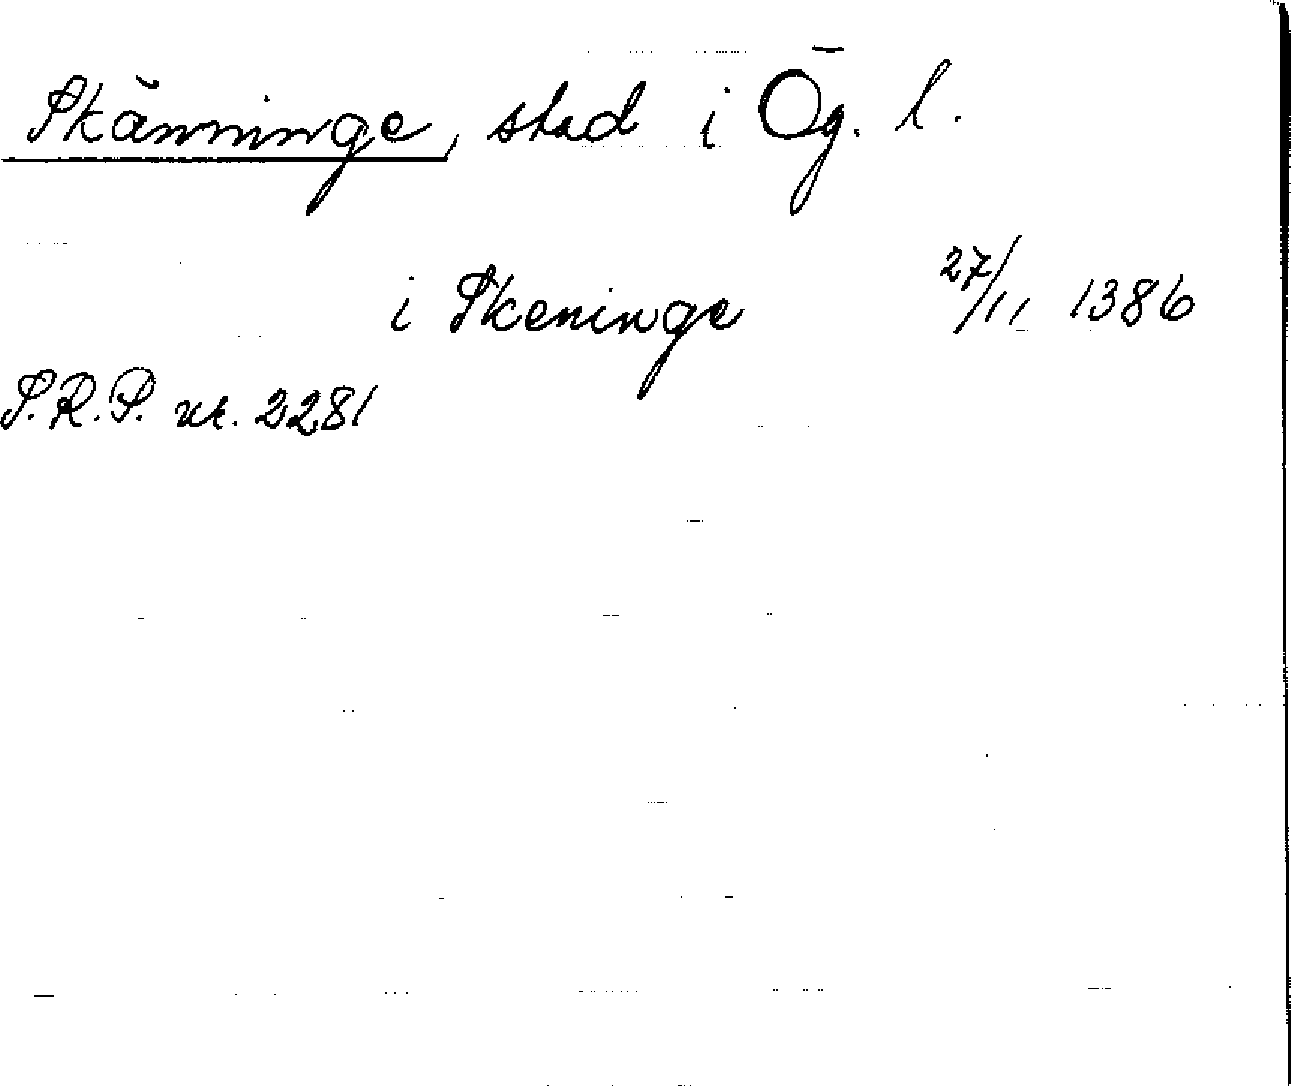 Skänninge, stad i Ög. l.
i Skeninge 27/11 1386
S.R.P. nr. 2281